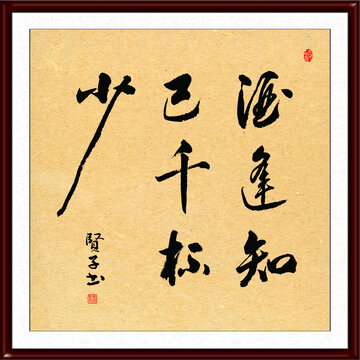 酒逢知
己千杯
少
賢子书